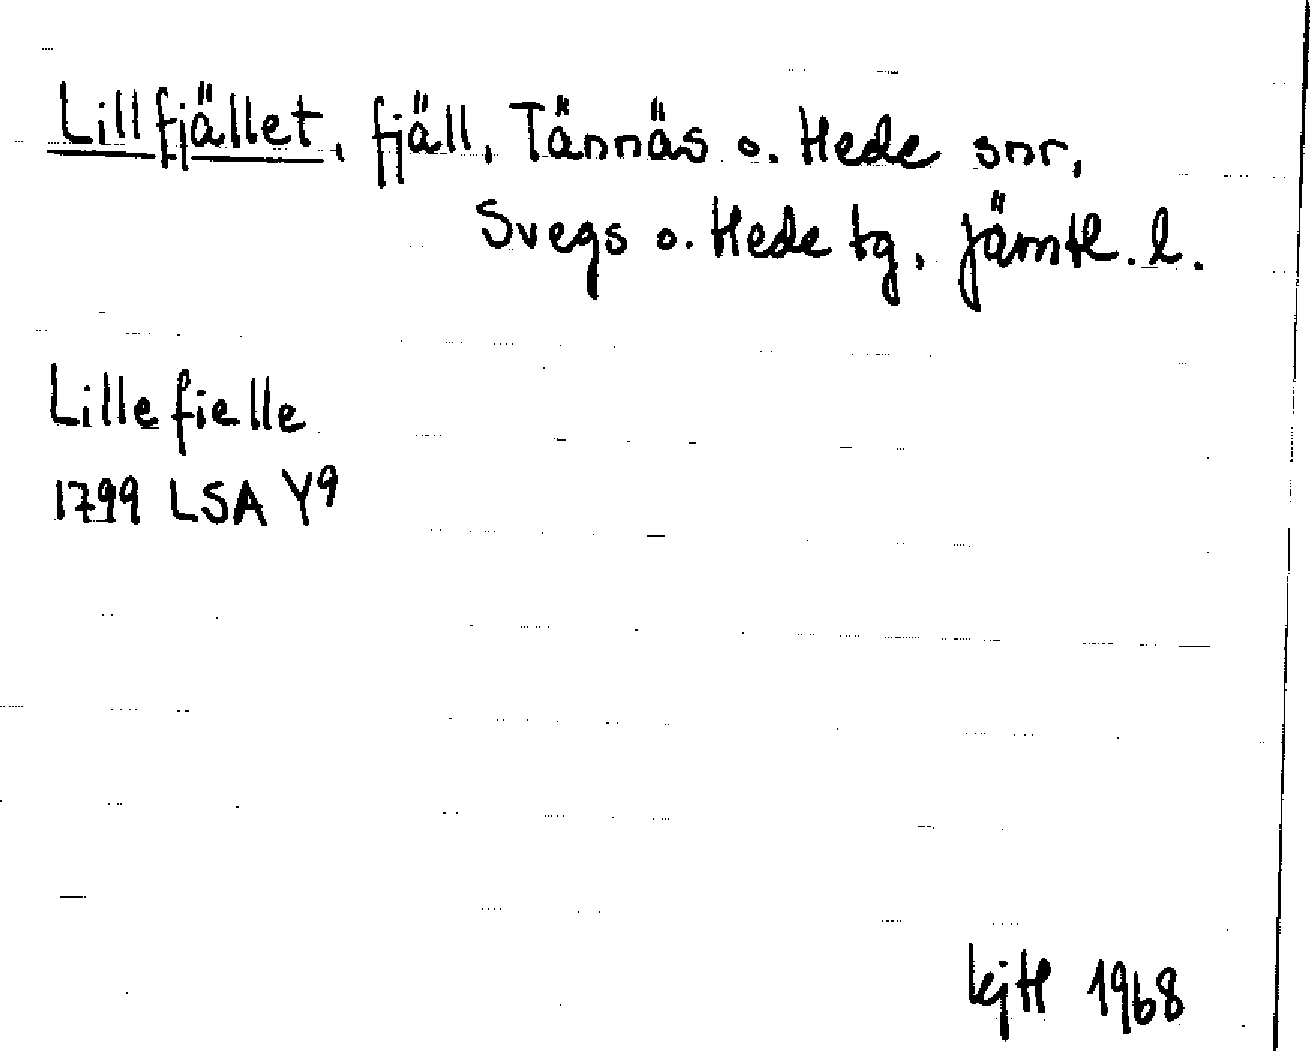 Lillfjället, fjäll, Tännäs o. Hede snr,
Svegs o. Hede tg, Jämtl. l.
Lillefielle
1799 LSA Y9
1968